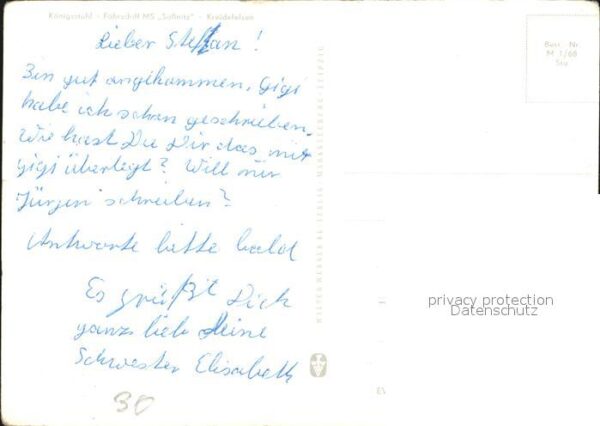 Königsstuhl - Fährschiff MS „Saßnitz" - Kreidefelsen
Lieber Steffan!
Bin gut angekommen, Gigi
habe ich schon geschrieben.
Wie hast Du Dir das mit
Gigi überlegt? Will mir
Jürgen schreiben?
Antworte bitte bald
Es grüßt Dich
ganz lieb Deine
Schwester Elisabeth
30
Best. Nr
M 1/66
privacy protection
Datenschutz